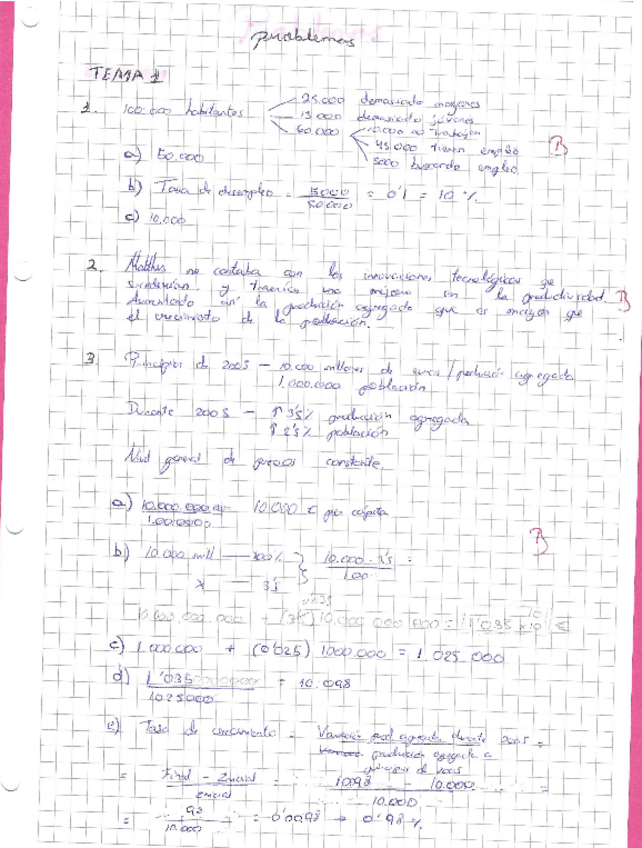 problemas
TEMA 1
1. 100.000 habitantes
25.000 demasiado mayores
15.000 demasiado jóvenes
60.000
10.000 no trabajan
45.000 tienen empleo
5000 buscando empleo
B
a) 50.000
b) Tasa de desempleo = 5000 / 50.000 = 0'1 = 10 %
c) 10.000
2. Malthus no contaba con las innovaciones tecnológicas que
y una mejora en la productividad B
Aumentando así la producción agregada que es mayor que
el crecimiento de la población.
3. Principios de 2005 – 10.000 millones de euros / producción agregada
1.000.000 población
Durante 2005 – ↑ 3'5% producción agregada
↑ 2'5% población
Nivel general de precios constante
a) 1.000.000 10.000 € per cápita
B
b) 10.000 mill — 100%
x — 3'5
10.000 · 3'5 / 100 =
10.000.000.000 = 1'035 × 10 €
c) 1.000.000 + (0'025) 1000.000 = 1.025.000
d) 1'035 / 1025000 = 10.098
e) Tasa de crecimiento = Variación prod agregada durante 2005 =
producción agregada a
= Final – Inicial / Inicial = 10098 – 10.000 / 10.000 =
= 98 / 10.000 = 0'0098 → 0'98 %